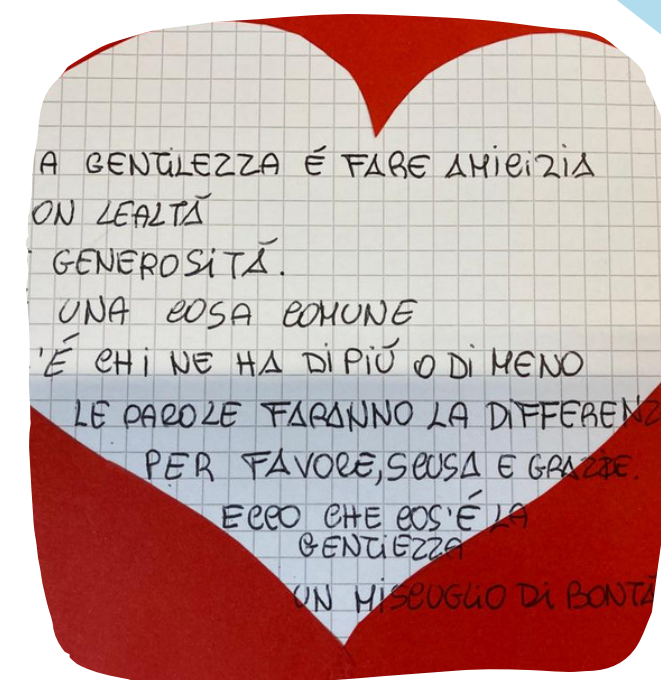 A GENTILEZZA É FARE AMICIZIA
ON LEALTÁ
GENEROSITÁ.
UNA COSA COMUNE
'É CHI NE HA DI PIÚ O DI MENO
LE PAROLE FARANNO LA DIFFERENZ
PER FAVORE, SCUSA E GRAZIE.
ECCO CHE COS'É LA
GENTIEZZA
UN MISCUGLIO DI BONTÁ